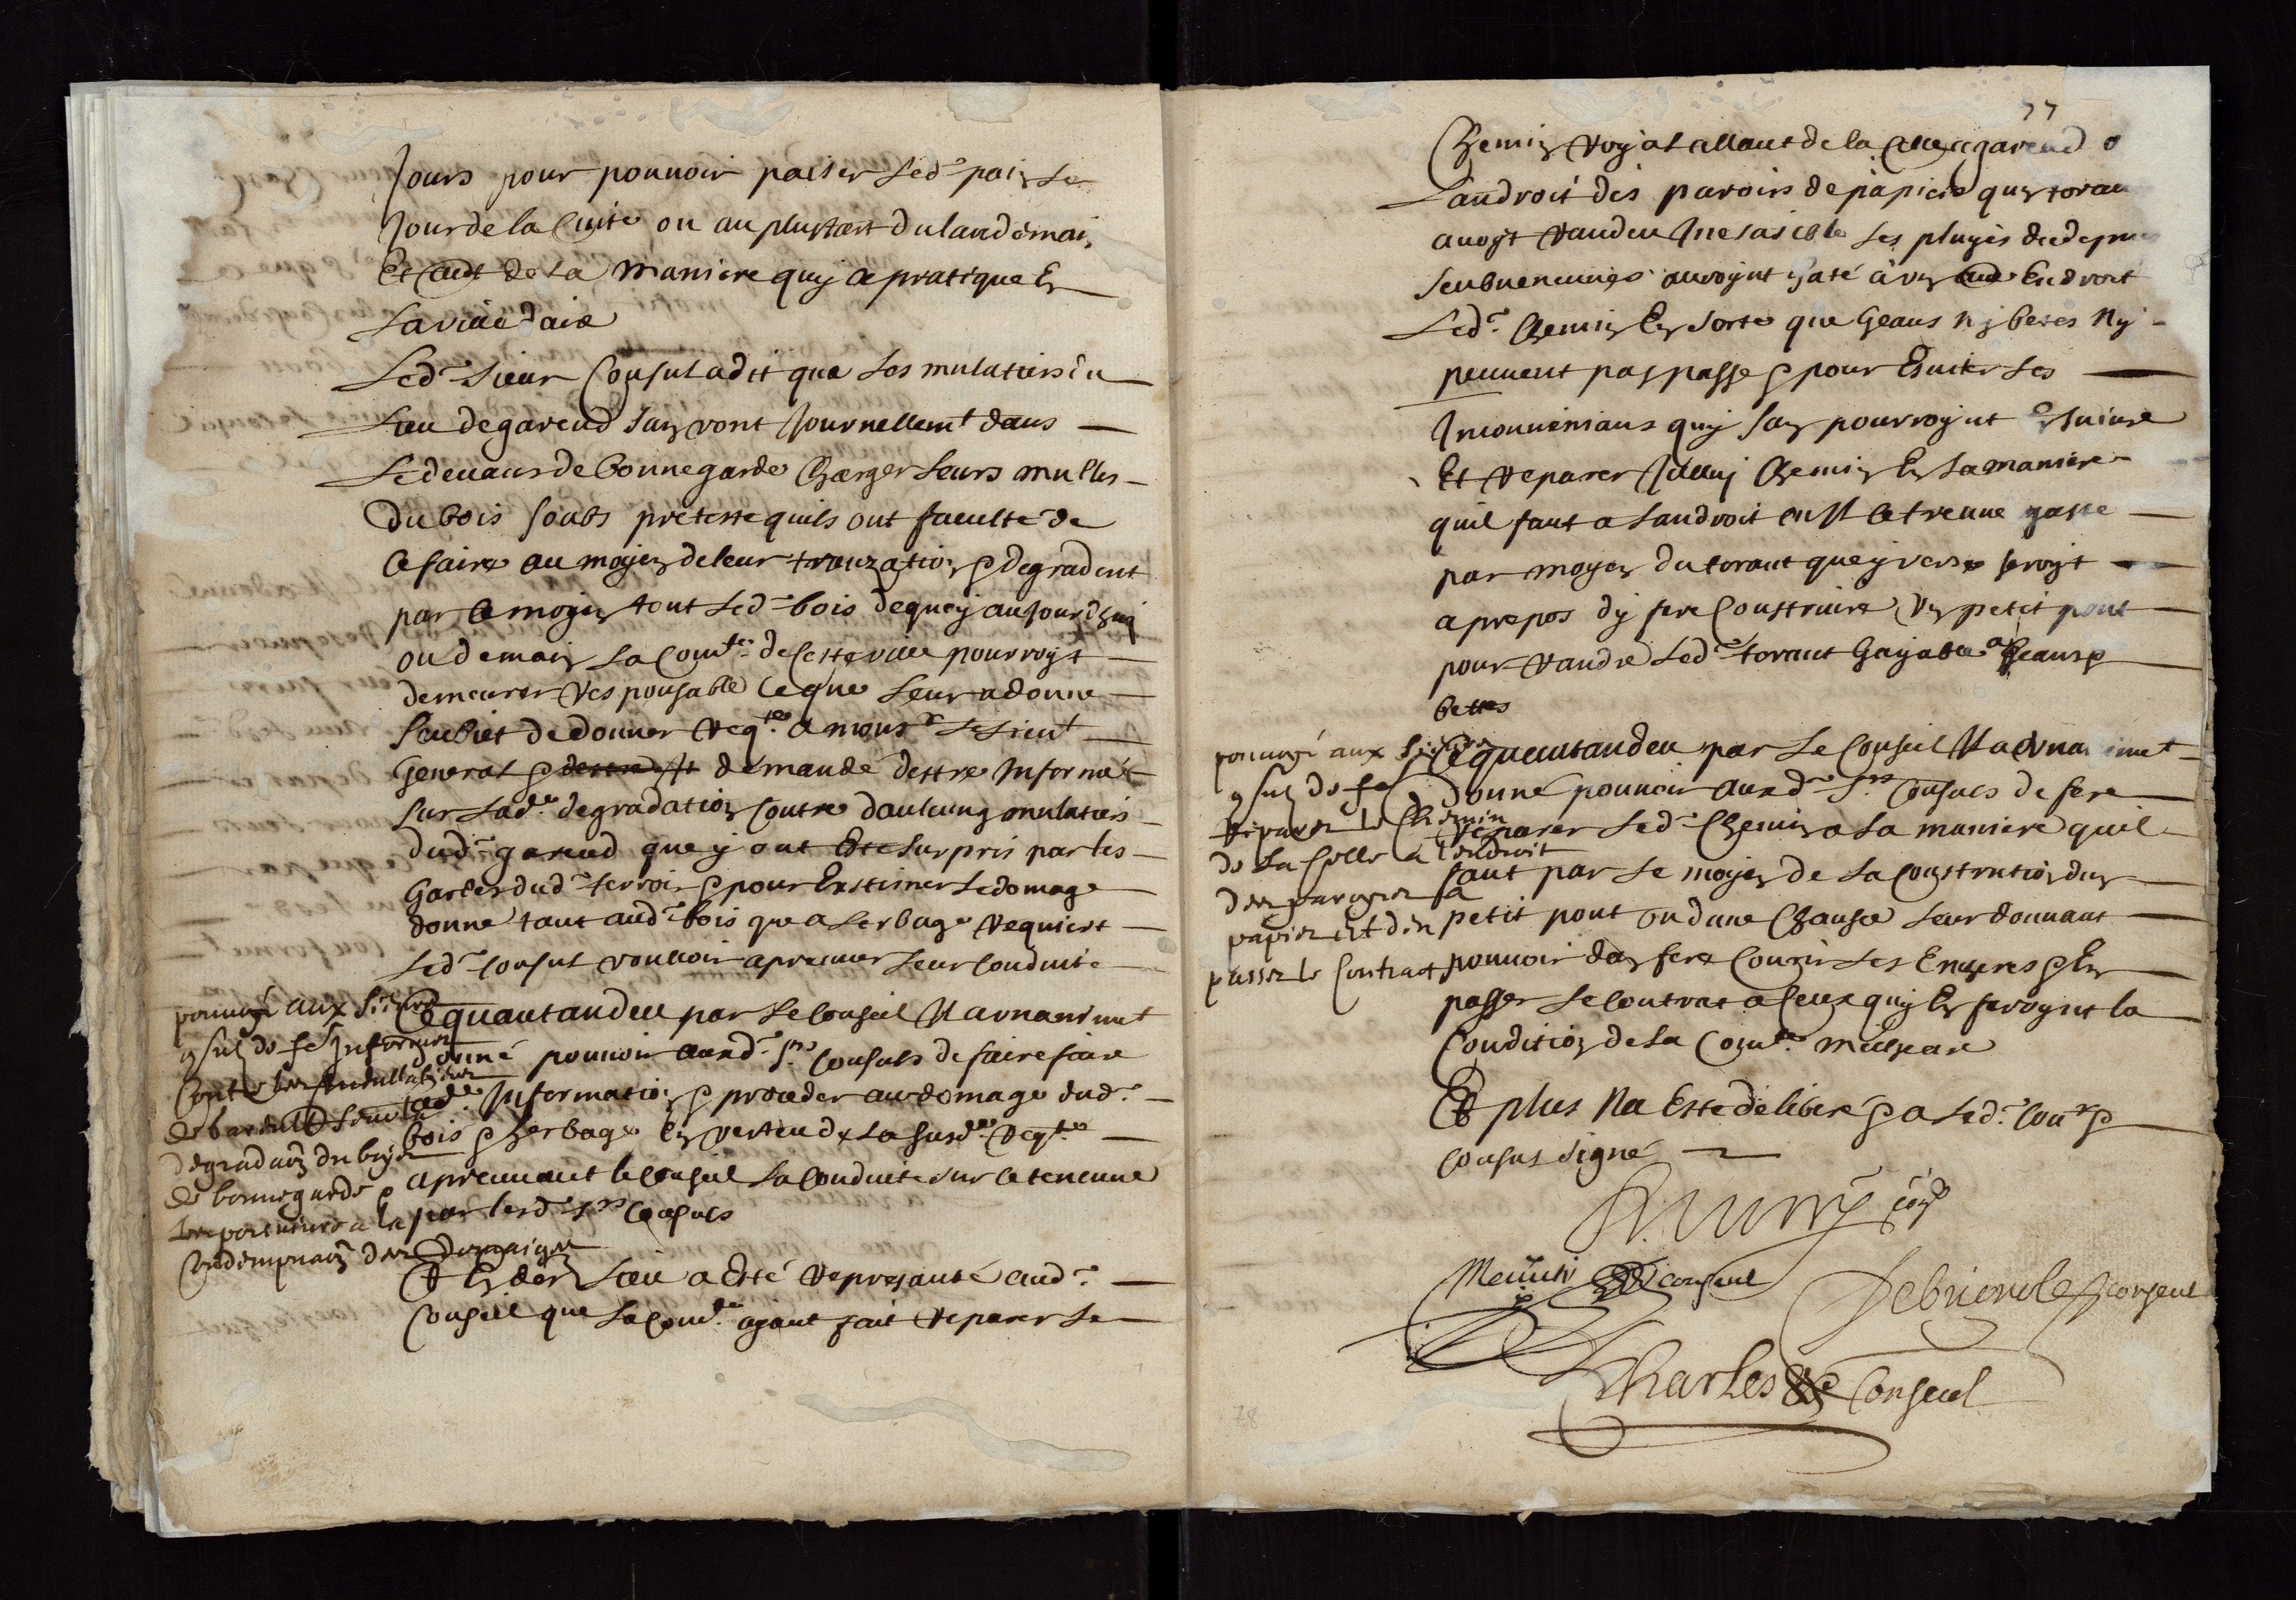 Jours pour pouuoir paiser led. pain le
Jour de la Cuite ou au plustart du landemain
Et Cuit de la maniere quy ce pratique En
La ville daix
Led. sieur Consul a dit que Les mulatiers du
Lieu de gareud san vont Journellemt dans
Le deuans de bonnegarde Charger Leurs mulles
Du bois soubs pretexte quils ont faculté de
Ce faire au moyen de leur tranzation & degradent
par Ce moyen tout Led. bois de quoy aujourdhuy
ou demain La Comte. de Cette ville pourroyt
demeurer responsable Ce que Leur a donne
Seubiet de donner reqte. a monsr. Le Lieut
General & demandé destre Informé
Sur Lade. degradation Contre daulcungs mulatiers
dud. gareud que y ont Este Surpris par les
Gardes dud. terroir & pour Extimer Le domage
donne tant aud. bois que a Lerbage requiert
Led. Consul voulloir apreuuer Leur Conduite
pouuoir aux sieurs
Consulz de fe Informer
Contre les mullatiers
de
degradaon du boys
de bonnegarde &
a la
Condempnaon des domaiges
Ce quantandeu par Le Conseil Il a vnanimet
donné pouuoir auxd. srs. Consuls de faire faire
lade. Information & proceder au domage dud.
bois & herbage En verteu de La susde. reqte.
apreuuant le Conseil La Conduite sur Ce teneue
par lesd. srs. Consuls
Et En der. Lieu a Esté represanté aud.
Conseil que La Comte. ayant fait reparer Le
77
Chemin royal allant de la Colle a gareud
Landroit des paroirs de papiers qun toran
auoyt randeu Inesasible Les pluyes deDepuis
Seubuenues auroynt gaté a vn Endroit
Led. Chemin En Sorte que Geans ny betes ny
peuuent pas passe & pour Esuiter Les
Inconuenians quy san pourroynt Ensuiure
Et reparer Icelluy Chemin En La maniere
quil faut a Landroit ou Il Ce treuue gaste
par moyen du torant que y verse seroyt
a propos dy fere Construire vn petit pont
pour randre Led. torant Gayable a Geans &
bettes
pouuoir aux sieurs
Consulz de fe
reparer le Chemin
de La Colle a Lendroit
des paroirs a
papier Et den
passer le Contrat
Ce quantandeu par Le Conseil Il a vnanimet
donné pouuoir auxd. Srs Consuls de fere
reparer Led. Chemin a La maniere quil
faut par Le moyen de La Constrution dun
petit pont ou dune Chausee Leur donnant
pouuoir dan fere Courir Les Encheres & En
passer Le Contrat a Ceux quy En feroynt la
Condition de La Comte. meilheure
Et plus Na Este deliberé & a Led. Conr &
Consul signé
Consul
Conseul
Charles Conseul
78